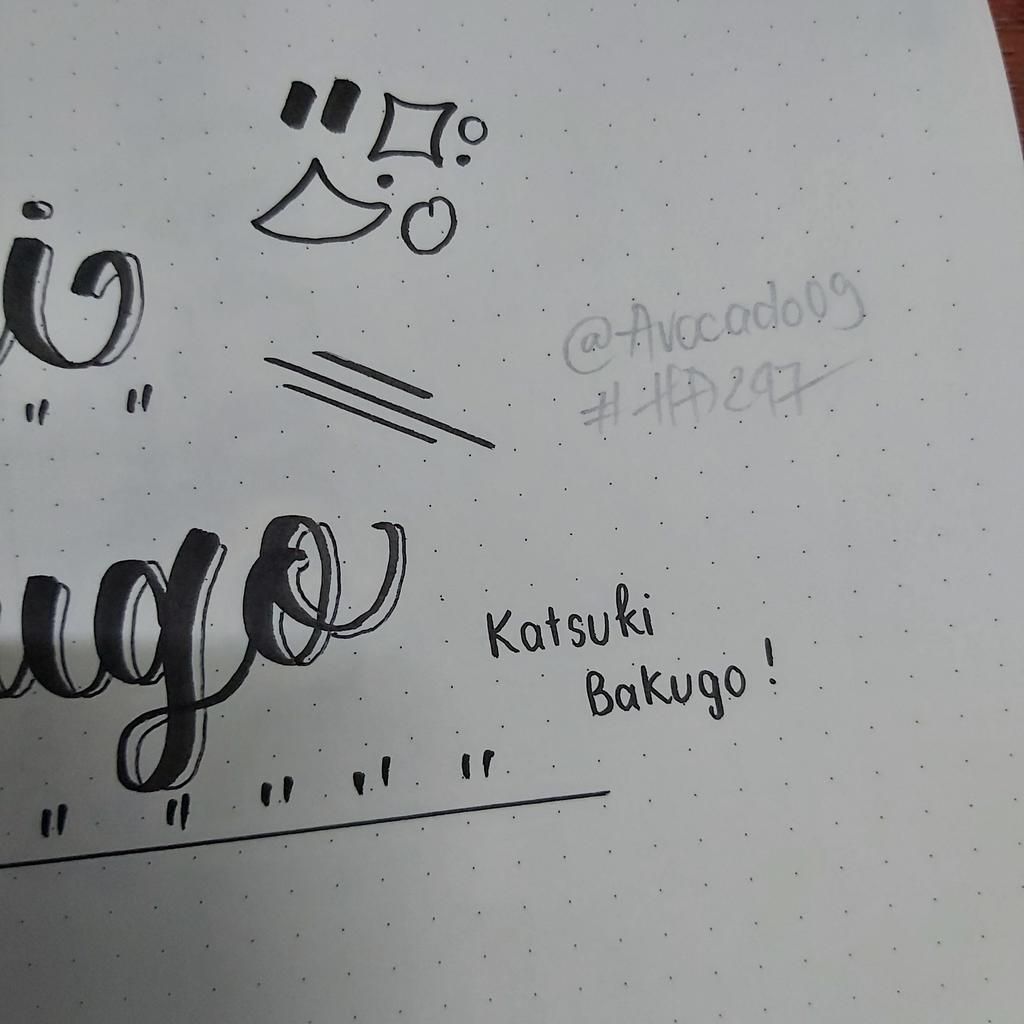 i
@Avocado09
#HD297
ugo
Katsuki
Bakugo!